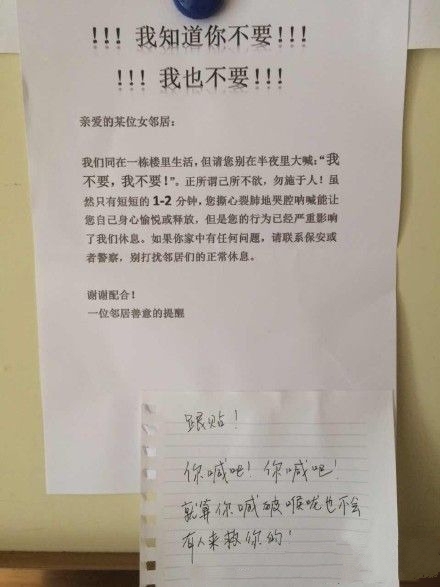 !!! 我知道你不要!!!
!!! 我也不要!!!
亲爱的某位女邻居:
我们同在一栋楼里生活,但请您别在半夜里大喊:“我
不要,我不要!”。正所谓己所不欲,勿施于人!虽
然只有短短的 1-2 分钟,您撕心裂肺地哭腔呐喊能让
您自己身心愉悦或释放,但是您的行为已经严重影响
了我们休息。如果你家中有任何问题,请联系保安或
者警察,别打扰邻居们的正常休息。
谢谢配合!
一位邻居善意的提醒
跟贴!
你喊吧!你喊吧!
就算你喊破喉咙也不会
有人来救你的!